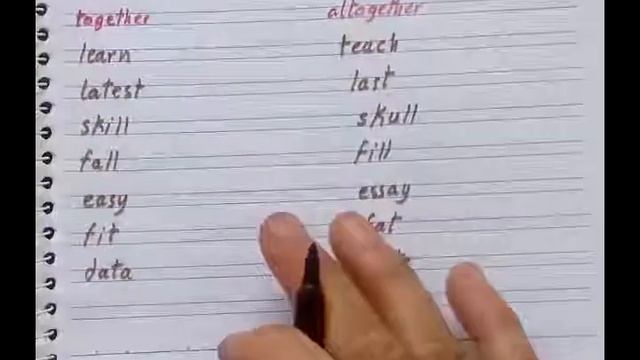 together altogether
learn teach
latest last
skill skull
fall fill
easy essay
fit fat
data